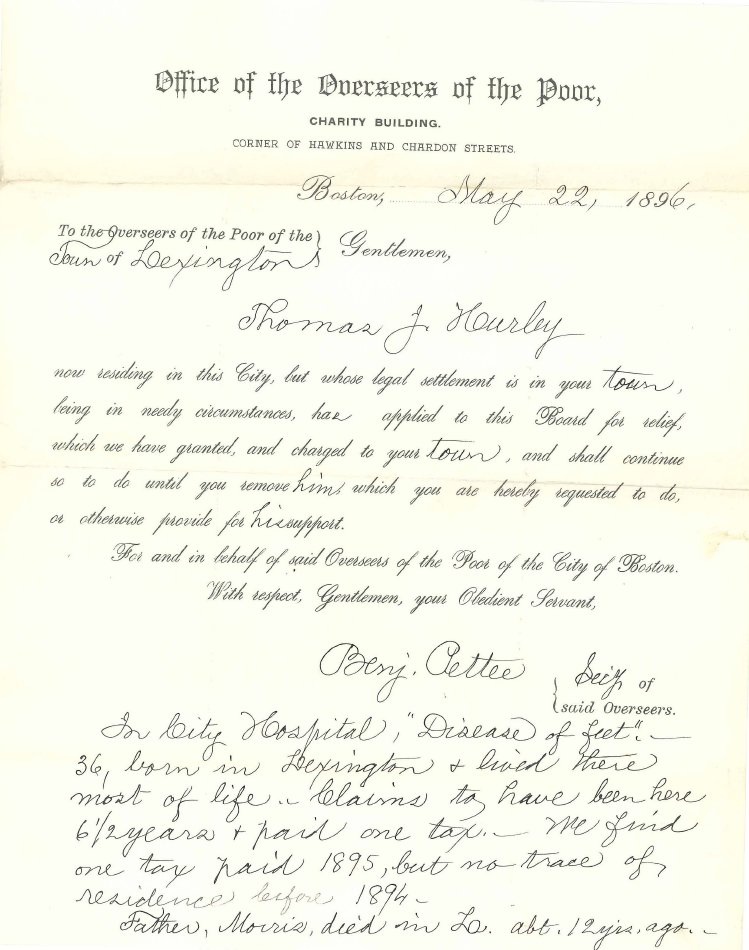 Office of the Overseers of the Poor,
CHARITY BUILDING.
CORNER OF HAWKINS AND CHARDON STREETS.
Boston, May 22, 1896.
To the Overseers of the Poor of the
Town of Lexington } Gentlemen,
Thomas J. Hurley
now residing in this City, but whose legal settlement is in your town,
being in needy circumstances, has applied to this Board for relief,
which we have granted, and charged to your town, and shall continue
so to do until you remove him, which you are hereby requested to do,
or otherwise provide for his support.
For and in behalf of said Overseers of the Poor of the City of Boston.
With respect, Gentlemen, your Obedient Servant,
Benj. Pettee { Sec'y of
said Overseers.
In City Hospital, "Disease of feet". —
36, born in Lexington & lived there
most of life. — Claims to have been here
6 1/2 years & paid one tax. — We find
one tax paid 1895, but no trace of
residence before 1894 —
Father, Morris, died in L. abt. 12 yrs. ago. —